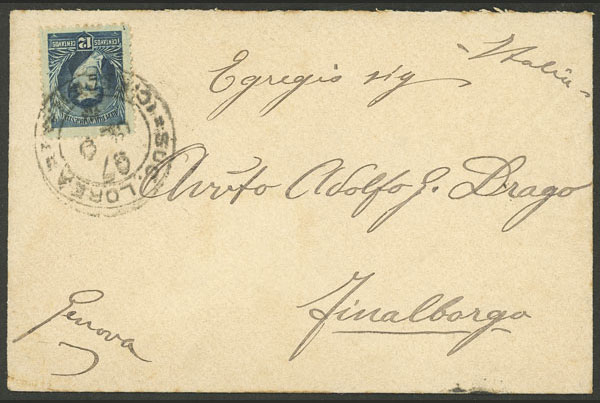 Italia
Egregio sig
Avv.to Adolfo G. Drago
Finalborgo
Genova
12
CENTAVOS CENTAVOS
SUC. LOREA
97